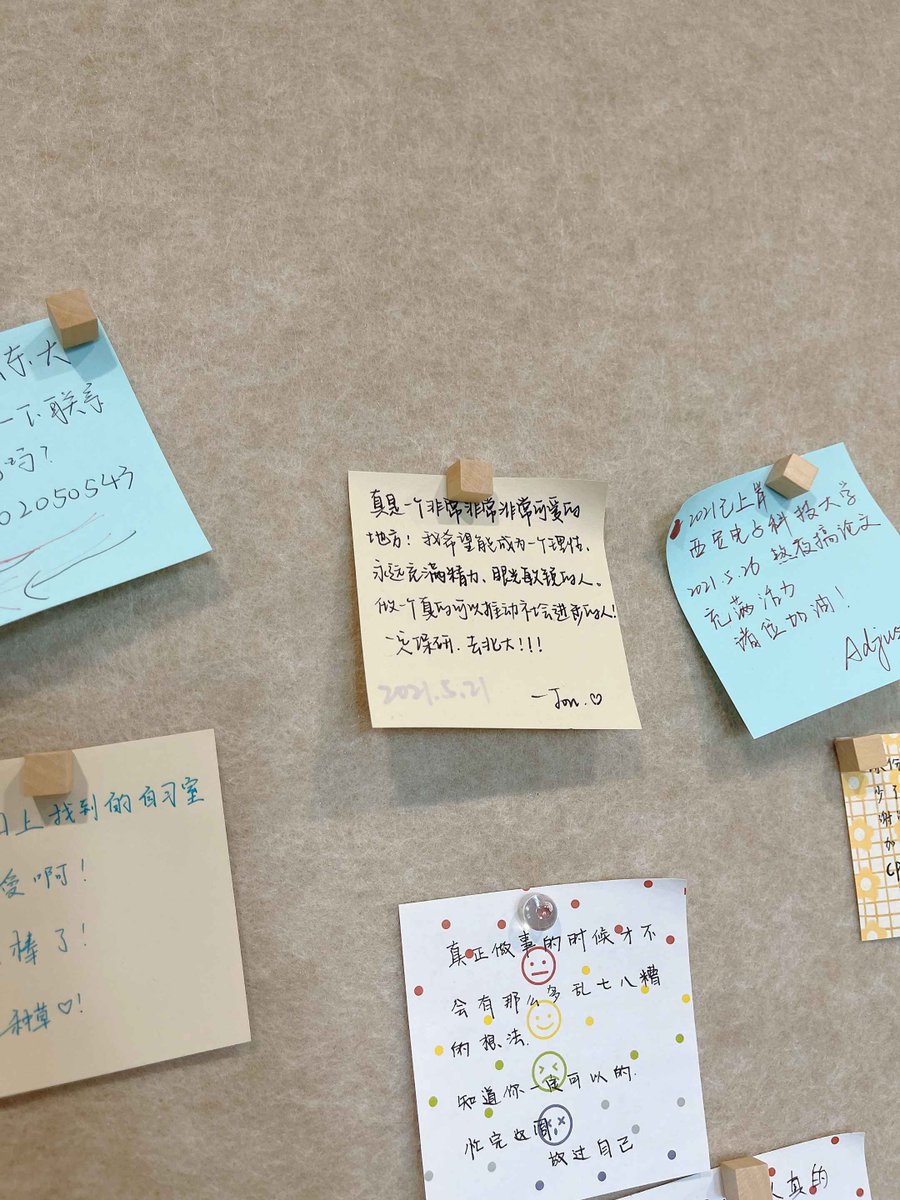 东大
一下联系
吗?
02050543
真是一个非常非常非常可爱的
地方!我希望能成为一个理性、
永远充满精力、眼光敏锐的人。
做一个真的可以推动社会进步的人!
一定保研.去北大!!!
2021.5.21
—Jon.♡
2021已上岸
西安电子科技大学
2021.5.26 熬夜搞论文
充满活力
诸位加油!
Adjus
上找到的自习室
爱啊!
棒了!
种草♡!
少了
谢
加
CP
真正做事的时候才不
会有那么多乱七八糟
的想法.
知道你一定可以的.
忙完这周
放过自己
人真的